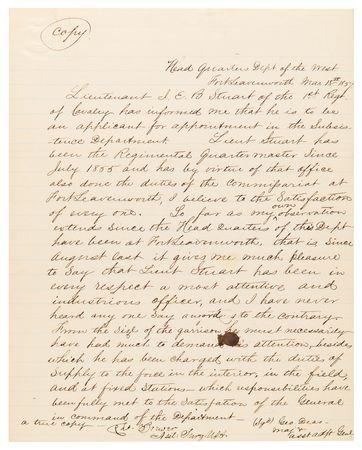 Copy
Head Quarters Dept of the West
Fort Leavenworth Mar 18th 1857
Lieutenant J. E. B Stuart of the 1st Regt.
of Cavalry has informed me that he is to be
an applicant for appointment in the Subsis-
tence Department. Lieut Stuart has
been the Regimental Quarter master Since
July 1855 and has by virtue of that office
also done the duties of the Commissariat at
Fort Leavenworth, I believe to the Satisfaction
of every one. So far as my own observation
extends since the Head Quarters of this Dept
have been at Fort Leavenworth, that is Since
August last it gives me much pleasure
to Say that Lieut Stuart has been in
every respect a most attentive and
industrious officer, and I have never
heard any one Say a word to the Contrary.
From the Size of the garrison he must necessarily
have had much to demand his attention, besides
which he has been charged with the duties of
Supply to the free in the interior, in the field,
and at fixed Stations — which responsibilities have
been fully met to the Satisfaction of the General
in command of the Department —
a true copy
Asst Surg U.S.A.
Geo Deas
Maj &
asst adjt Genl